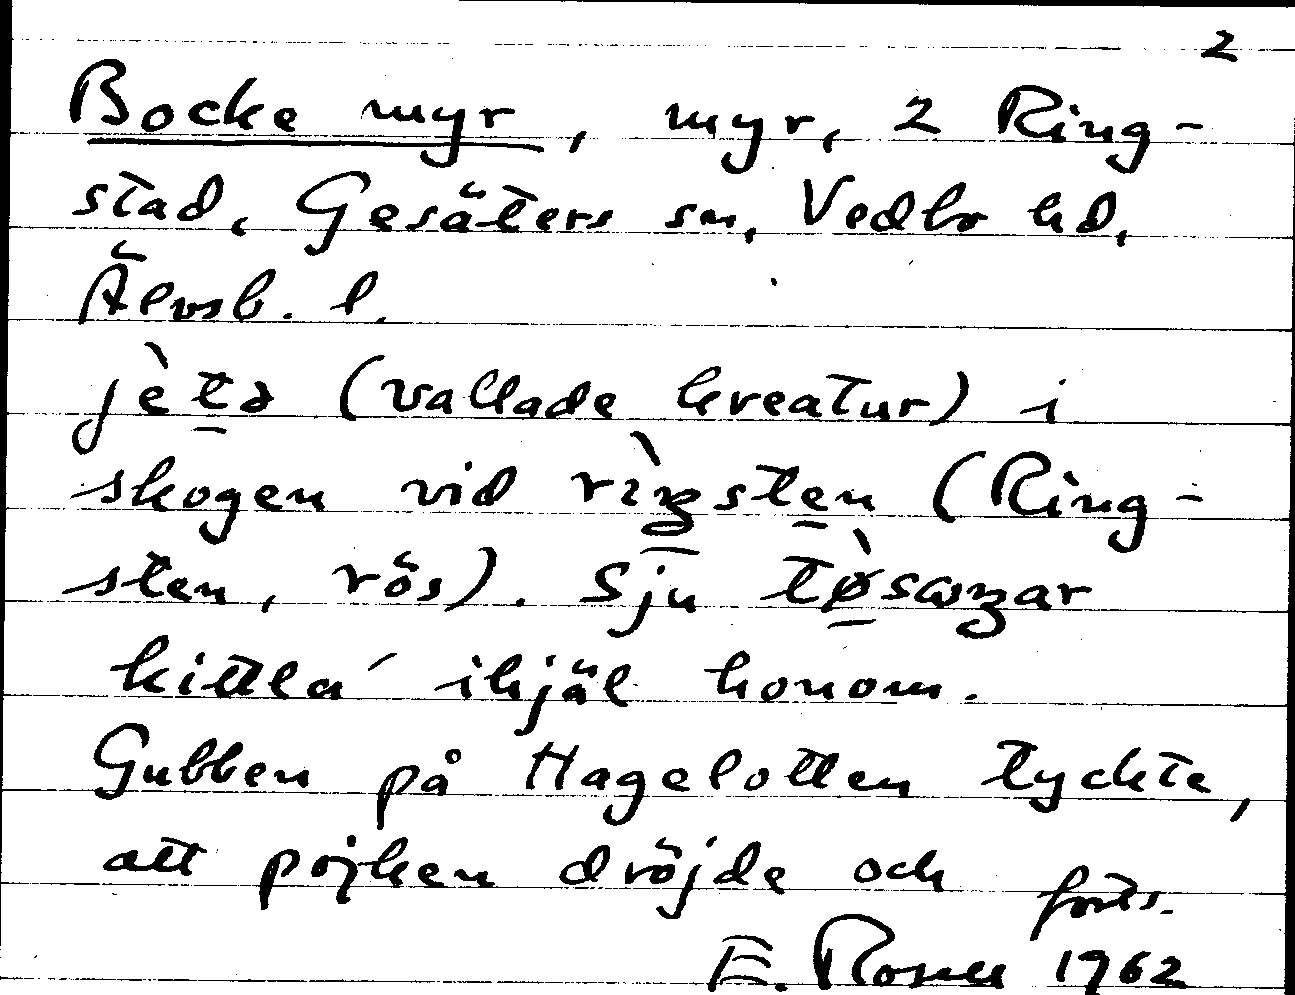 2
Bocke myr, myr, 2 Ring-
stad, Gesäters sn, Vedbo hd,
Älvsb. l.
jètə (vallade kreatur) i
skogen vid rìŋsten (Ring-
sten, rös). Sju
kittla' ihjäl honom.
Gubben på Hagelotten tyckte,
att pojken dröjde och forts.
E. Rosell 1962